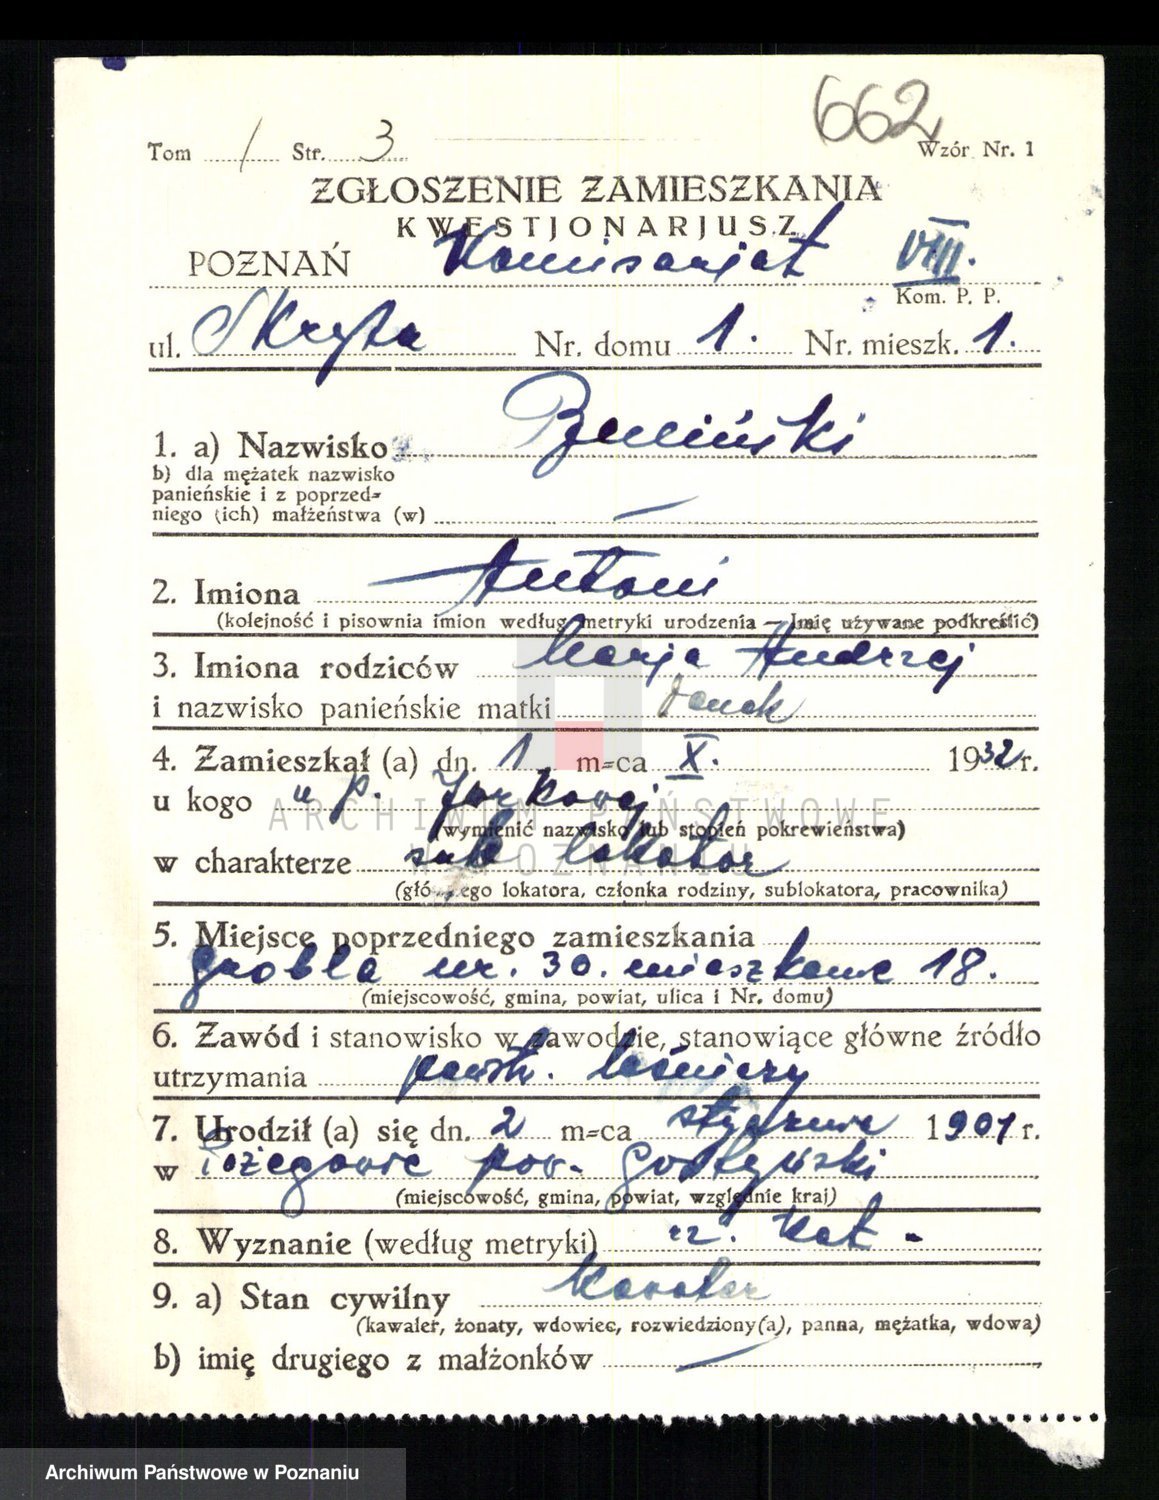 662
Tom 1 Str. 3 Wzór Nr. 1
ZGŁOSZENIE ZAMIESZKANIA
KWESTJONARJUSZ
POZNAŃ Komisarjat VIII.
Kom. P. P.
ul. Skryta Nr. domu 1. Nr. mieszk. 1.
1. a) Nazwisko
b) dla mężatek nazwisko
panieńskie i z poprzed-
niego (ich) małżeństwa (w) —
2. Imiona Antoni
(kolejność i pisownia imion według metryki urodzenia — Imię używane podkreślić)
3. Imiona rodziców Marja Andrzej
i nazwisko panieńskie matki
4. Zamieszkał (a) dn. 1 m-ca X. 1932 r.
u kogo u p.
(wymienić nazwisko lub stopień pokrewieństwa)
w charakterze sub lokator
(głównego lokatora, członka rodziny, sublokatora, pracownika)
5. Miejsce poprzedniego zamieszkania
Grobla nr. 30. mieszkanie 18.
(miejscowość, gmina, powiat, ulica i Nr. domu)
6. Zawód i stanowisko w zawodzie, stanowiące główne źródło
utrzymania państw. leśniczy
7. Urodził (a) się dn. 2 m-ca stycznia 1901 r.
w Pożegowie pow. Gostyński
(miejscowość, gmina, powiat, względnie kraj)
8. Wyznanie (według metryki) rz. kat -
9. a) Stan cywilny kawaler
(kawaler, żonaty, wdowiec, rozwiedziony(a), panna, mężatka, wdowa)
b) imię drugiego z małżonków —
ARCHIWUM PAŃSTWOWE
W POZNANIU
Archiwum Państwowe w Poznaniu